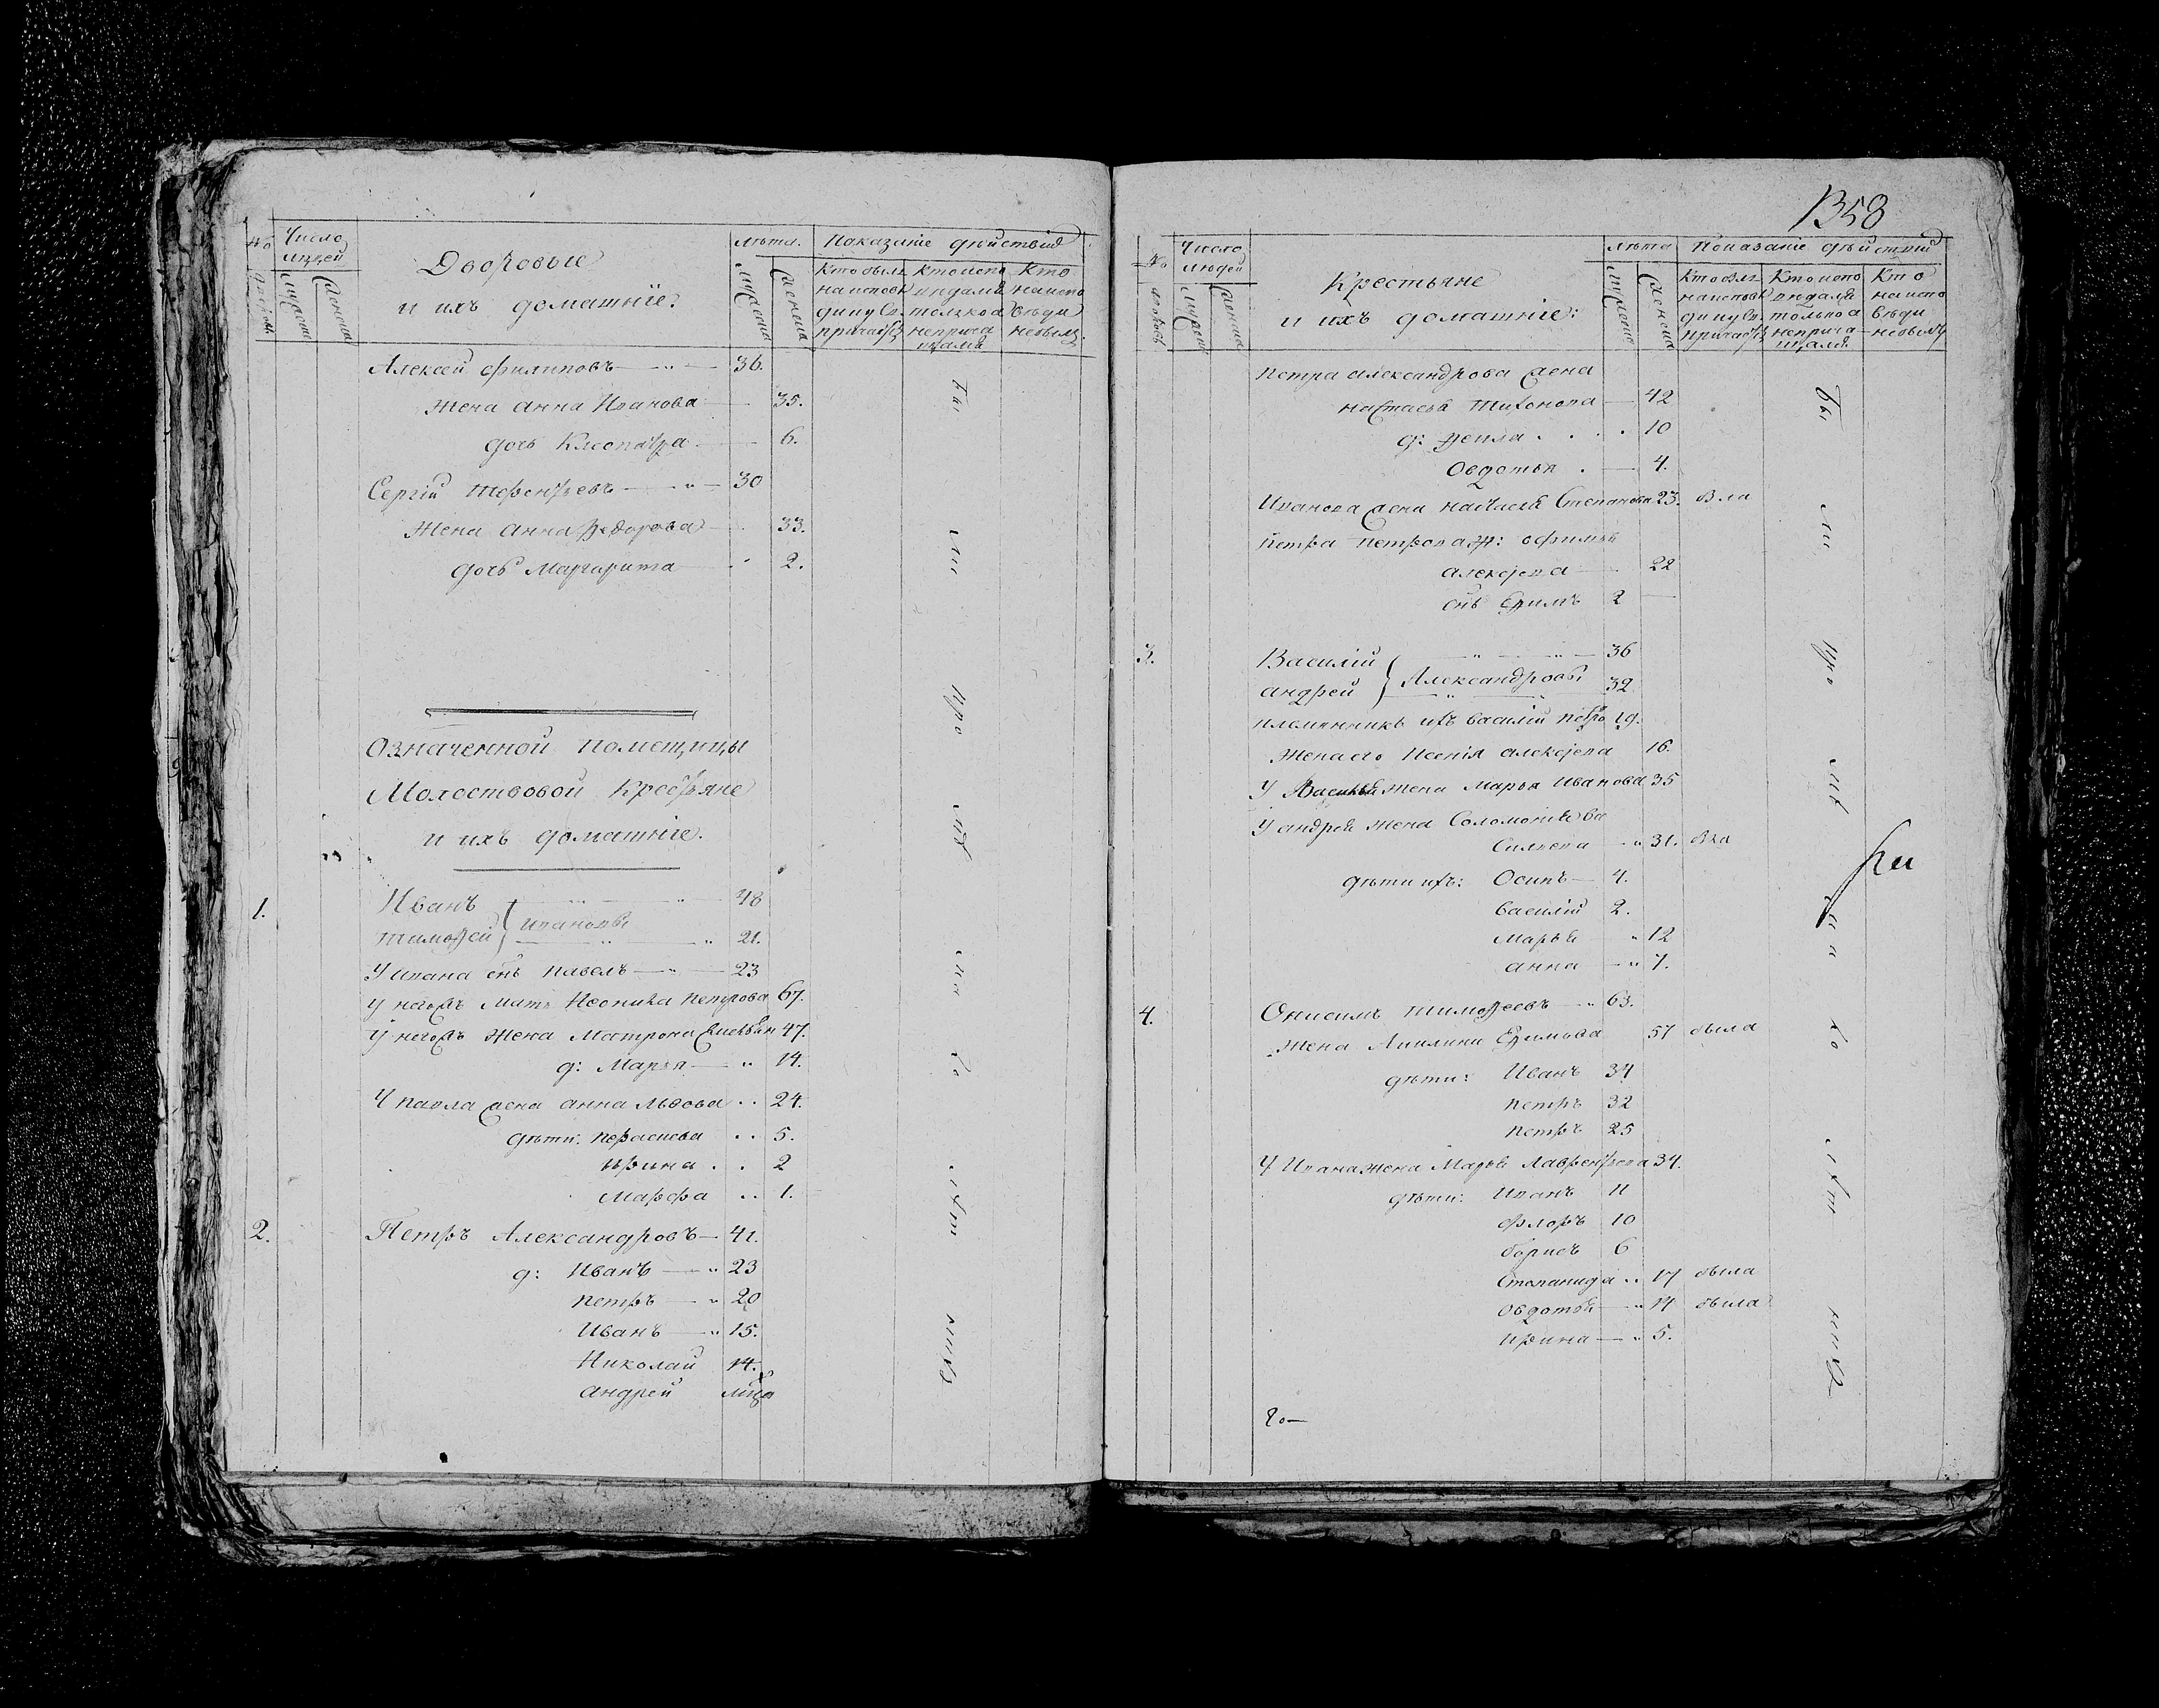 №
Число
людей
Дворовые
и ихъ домашніе:
лѣта.
Показаніе дѣйствія
дворовъ
мужеска
женска
мужеска
женска
Кто былъ
на исповѣ
ди и у Св.
причастія
Кто испо
вѣдался
только а
неприча
щался
Кто
на испо
вѣди
небылъ
Алексей Филиповъ 36.
Жена Анна Иванова 35.
дочь Клеопатра 6.
Сергій Терентьевъ 30
Жена Анна Ѳедорова 33.
дочь Маргарита 2.
Означенной помещицы
Молоствовой Крестьяне
и ихъ домашніе.
1. Иванъ 48
Тимофей Ивановы 21.
У Ивана сынъ Павелъ 23
У негожъ Мать Петрова 67.
У негожъ Жена Матрона 47.
д: Марья 14.
У Павла жена Анна Львова 24.
дѣти: 5.
Ирина 2
Марфа 1.
2. Петръ Александровъ 41.
д: Иванъ 23
Петръ 20
Иванъ 15.
Николай 14.
Андрей
1358
№
Число
людей
Крестьяне
и ихъ домашніе:
лѣта
Показаніе дѣйствия
дворовъ
мужеска
женска
мужеска
женска
Кто былъ
на исповѣ
ди и у Св.
причастія
Кто испо
вѣдался
только а
неприча
щался
Кто
на испо
вѣди
небылъ
Петра Александрова жена
Настасья Тихонова 42
д: 10
Овдотья 4.
Иванова жена Настасья Степанова 23.
Петра Петрова ж: Офимья
Алексѣева 22
сынъ Ефимъ 2
3. Василий 36
Андрей Александровы 32
племянникъ ихъ Василий Петро 19.
Жена его Ксения Алексѣева 16.
У Василья жена Марья Иванова 35
У Андрея жена Соломонида
31.
дѣти ихъ: Осипъ 4.
Василий 2.
Марья 12
Анна 7.
4. Онисимъ Тимофеевъ 63.
Жена Акилина Ефимова 57 была
дѣти: Иванъ 34
Петръ 32
Петръ 25
У Ивана жена Марья Лаврентьева 34.
дѣти: Иванъ 11
Флоръ 10
Борисъ 6
Степанида 17 была
Овдотья 14 была
Ирина 5.